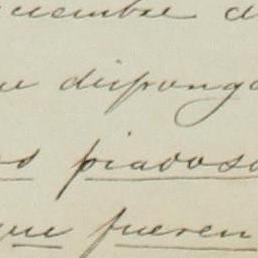 viembre d
ue disponga
os piadosa
que fueren